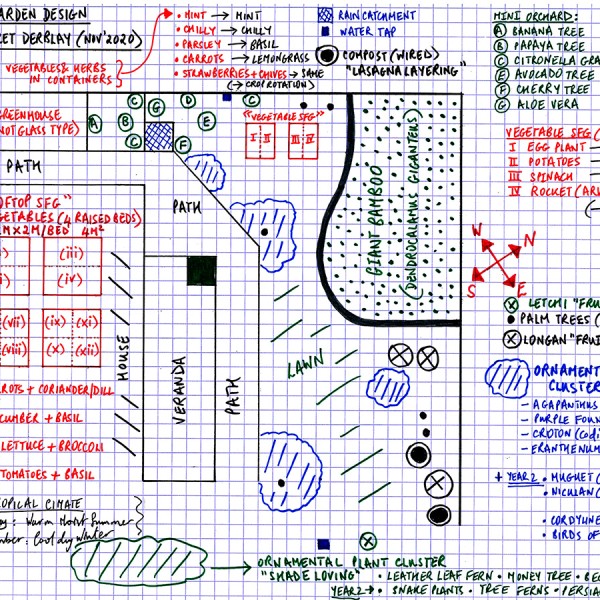 ARDEN DESIGN
DERBLAY (NOV'2020)
VEGETABLES & HERBS
IN CONTAINERS
• MINT → MINT
• CHILLY → CHILLY
• PARSLEY → BASIL
• CARROTS → LEMONGRASS
• STRAWBERRIES + CHIVES → SAME
(→ CROP ROTATION)
RAIN CATCHMENT
WATER TAP
COMPOST (WIRED)
"LASAGNA LAYERING"
MINI ORCHARD:
A BANANA TREE
B PAPAYA TREE
C CITRONELLA GRA
E AVOCADO TREE
F CHERRY TREE
G ALOE VERA
REENHOUSE
NOT GLASS TYPE)
A
B
C
C
G
D
E
F
C
"VEGETABLE SFG"
I II III IV
VEGETABLE SFG (
I EGG PLANT —
II POTATOES —
III SPINACH —
IV ROCKET (AR
PATH
PATH
GIANT BAMBOO
(DENDROCALAMUS GIGANTEUS)
OFTOP SFG"
GETABLES (4 RAISED BEDS)
M X 2M/BED 4M²
(iii)
(iv)
(vii) (ix) (xi)
(viii) (x) (xii)
HOUSE
VERANDA
PATH
LAWN
W N
S E
LETCHI "FRU
PALM TREES (
LONGAN "FRUI
ORNAMEN
CLUSTER
— AGAPANTHUS
— PURPLE FOUN
— CROTON (Codi
— ERANTHEMUM
+ YEAR 2 • MUGUET (
• NICULAN (
• CORDYLINE
• BIRDS OF
ROTS + CORIANDER/DILL
CUMBER + BASIL
LETTUCE + BROCCOLI
TOMATOES + BASIL
ROPICAL CLIMATE
: Warm Moist Summer
mber: Cool dry Winter
ORNAMENTAL PLANT CLUSTER
"SHADE LOVING" • LEATHER LEAF FERN • MONEY TREE • BE
YEAR 2 → • SNAKE PLANTS • TREE FERNS • PERSIA